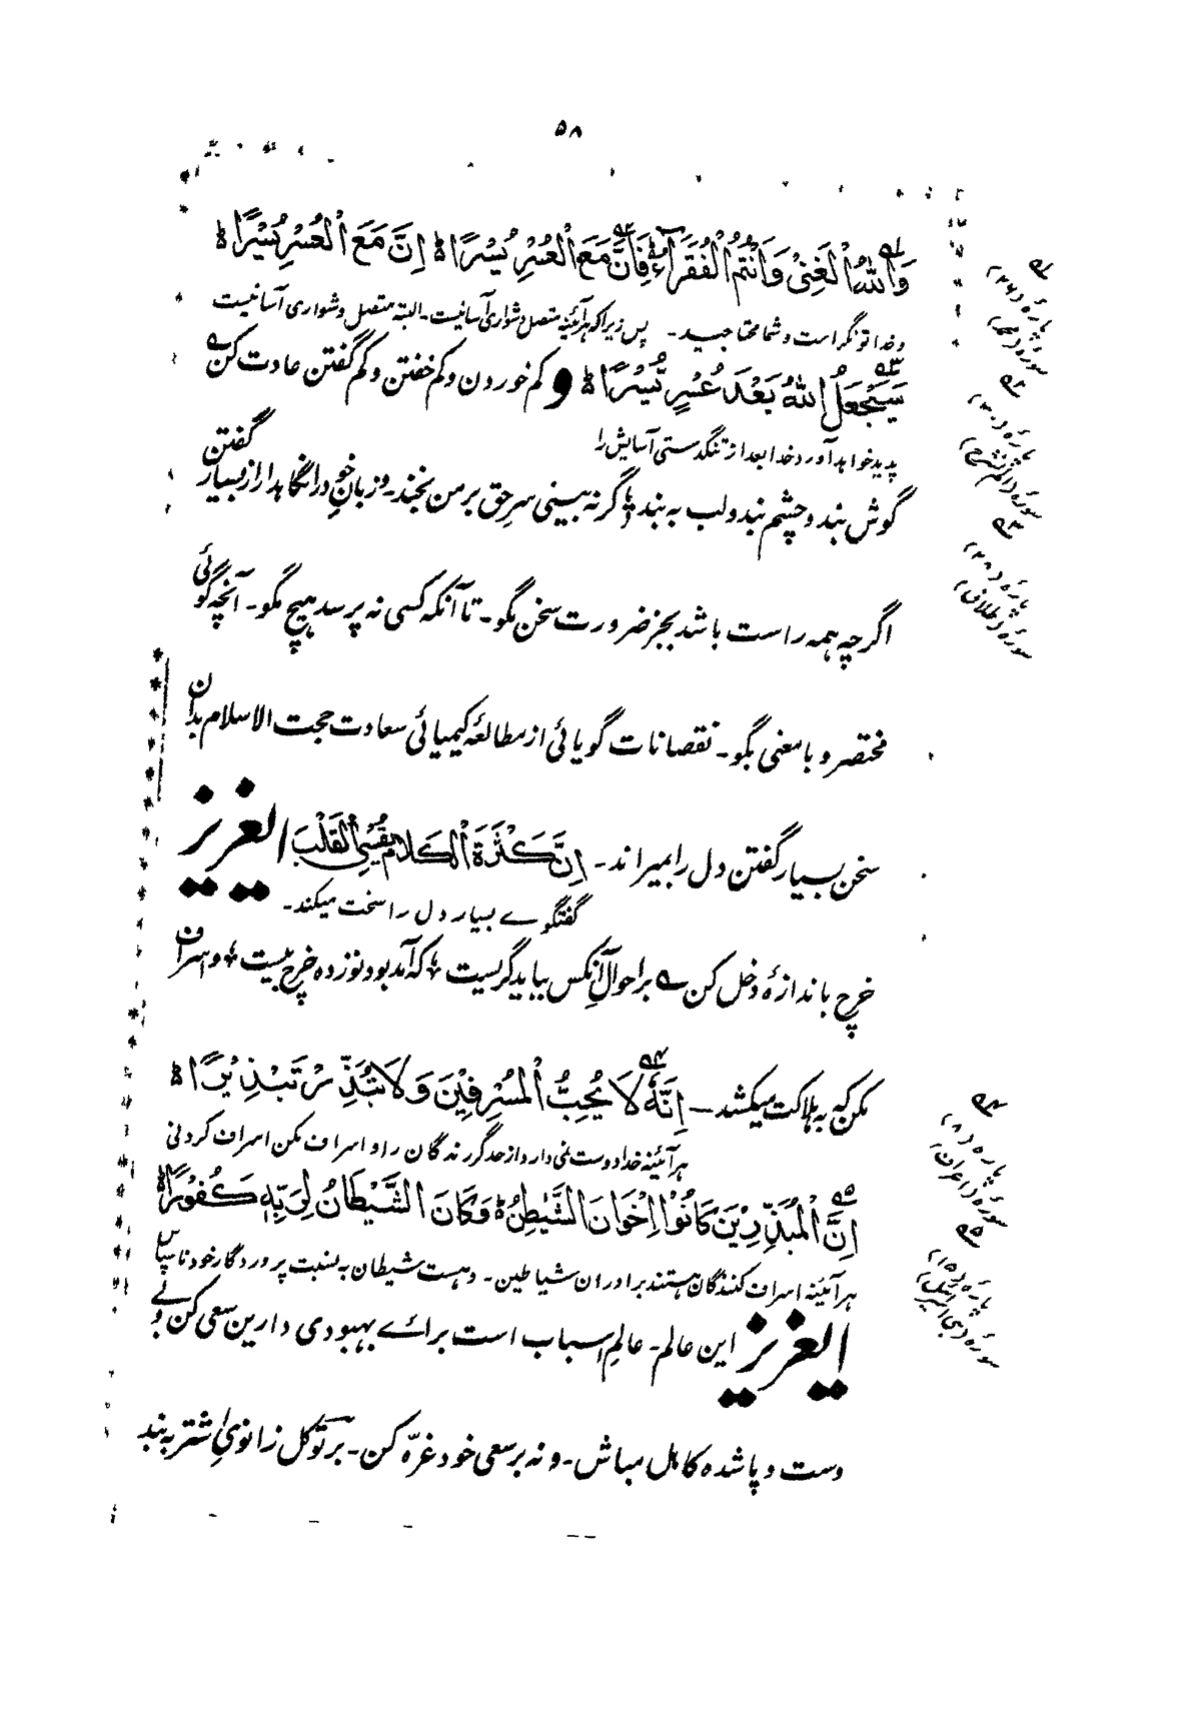 ۵۸
وَاللهُ الْغَنِیُّ وَاَنْتُمُ الْفُقَرَآءُ فَاِنَّ مَعَ الْعُسْرِ یُسْرًا اِنَّ مَعَ الْعُسْرِ یُسْرًا
وخدا تونگر است و شما محتاجید۔ پس زیرا کہ ہرآئینہ متصل دشواری آسانیست۔ البتہ متصل دشواری آسانیست
سَیَجْعَلُ اللهُ بَعْدَ عُسْرٍ یُّسْرًا و کم خوردن و کم خفتن و کم گفتن عادت کن ے
پدید خواهد آورد خدا بعد از تنگدستی آسایش را
گوش بند و چشم بند و لب به بند ؛ گر نه بینی سرِ حق بر من بخند۔ و زبانِ خود را نگاہدار از بسیار گفتن
اگرچہ ہمہ راست باشد بجز ضرورت سخن مگو۔ تا آنکہ کسی نہ پرسد ہیچ مگو۔ آنچہ گوئی
مختصر و بامعنی بگو۔ نقصانات گویائی از مطالعۂ کیمیائی سعادت حجت الاسلام بدان
سخن بسیار گفتن دل را بمیراند۔ اِنَّ کَثْرَۃَ الْکَلَامِ یُقَسِّی الْقَلْبَ ایعزیز
گفتگوے بسیار دل را سخت میکند۔
خرچ باندازۂ دخل کن ے بر احوال آنکس بباید گریست ؛ کہ آمد بود نوزدہ خرچ بیست ؛ و اسراف
مکن کہ بہ ہلاکت میکشد۔ اِنَّہٗ لَا یُحِبُّ الْمُسْرِفِیْنَ وَلَا تُبَذِّرْ تَبْذِیْرًا
ہرآئینہ خدا دوست نمی دارد از حد گزرندگان را و اسراف مکن اسراف کردنی
اِنَّ الْمُبَذِّرِیْنَ کَانُوْا اِخْوَانَ الشَّیٰطِیْنِ وَکَانَ الشَّیْطَانُ لِرَبِّہٖ کَفُوْرًا
ہرآئینہ اسراف کنندگان ہستند برادران شیاطین۔ و ہست شیطان بہ نسبت پروردگار خود ناسپاس
ایعزیز این عالم۔ عالمِ اسباب است براے بہبودی دارین سعی کن و بے
دست و پا شدہ کاہل مباش۔ و نہ بر سعی خود غرّہ کن۔ بر توکل زانویٔ اشتر بہ بند
۵۱
پارۂ (۲۶)
سورۂ (محمد)
۵۲
پارۂ (۳۰)
سورۂ (الم نشرح)
۵۳
پارۂ (۲۸)
سورۂ (طلاق)
۵۴
پارۂ (۸)
سورۂ (اعراف)
۵۵
پارۂ (۱۵)
سورۂ (بنی اسرائیل)